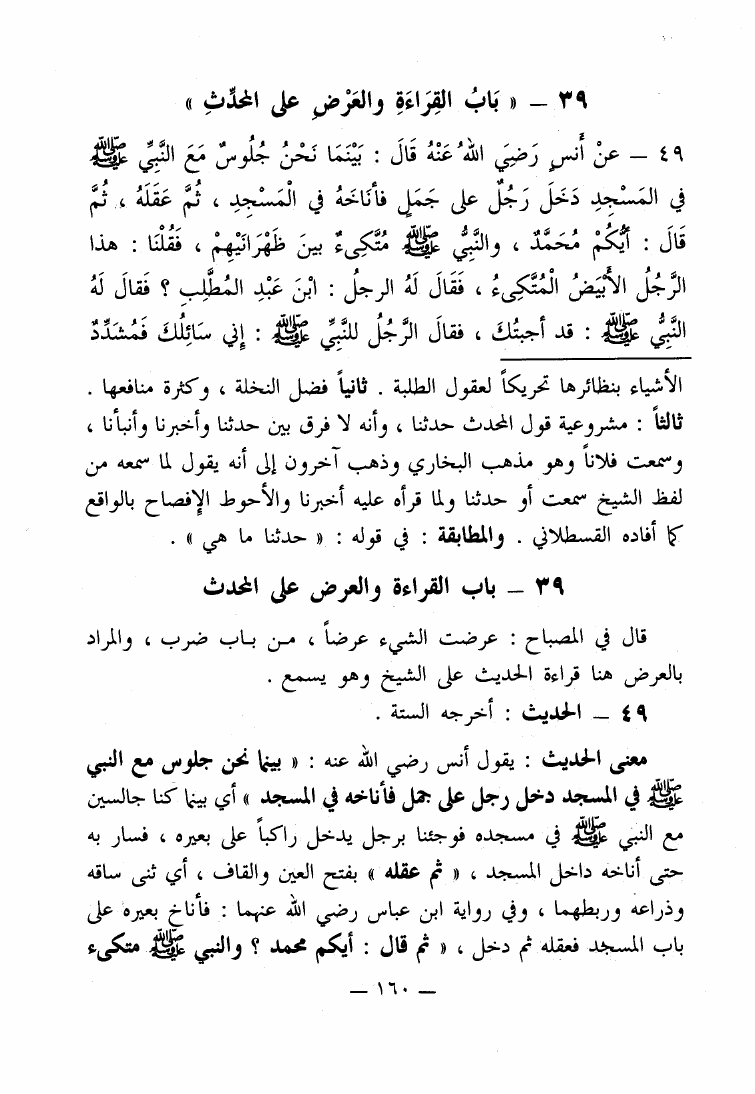 ٣٩ – « بَابُ القِرَاءَةِ والعَرْضِ على المحدِّثِ »
٤٩ – عنْ أَنسٍ رَضِيَ اللهُ عَنْهُ قَالَ : بَيْنَمَا نَحْنُ جُلُوسٌ مَعَ النَّبِيِّ ﷺ
في المَسْجِدِ دَخَلَ رَجُلٌ على جَمَلٍ فأَنَاخَهُ في الْمَسْجِدِ ، ثُمَّ عَقَلَهُ ، ثُمَّ
قَالَ : أَيُّكُمْ مُحَمَّدٌ ، والنَّبِيُّ ﷺ مُتَّكِىءٌ بينَ ظَهْرَانَيْهِمْ ، فَقُلْنَا : هذا
الرَّجُلُ الأَبْيَضُ الْمُتَّكِىءُ ، فَقَالَ لَهُ الرجلُ : ابْنَ عَبْدِ المُطَّلِبِ ؟ فَقالَ لَهُ
النَّبِيُّ ﷺ : قد أجبتُكَ ، فقالَ الرَّجُلُ للنَّبِيِّ ﷺ : إِني سَائِلُكَ فَمُشَدِّدٌ
الأشياء بنظائرها تحريكاً لعقول الطلبة . ثانياً فضل النخلة ، وكثرة منافعها .
ثالثاً : مشروعية قول المحدث حدثنا ، وأنه لا فرق بين حدثنا وأخبرنا وأنبأنا ،
وسمعت فلاناً وهو مذهب البخاري وذهب آخرون إلى أنه يقول لما سمعه من
لفظ الشيخ سمعت أو حدثنا ولما قرأه عليه أخبرنا والأحوط الإفصاح بالواقع
كما أفاده القسطلاني . والمطابقة : في قوله : « حدثنا ما هي » .
٣٩ – باب القراءة والعرض على المحدث
قال في المصباح : عرضت الشيء عرضاً ، من باب ضرب ، والمراد
بالعرض هنا قراءة الحديث على الشيخ وهو يسمع .
٤٩ – الحديث : أخرجه الستة .
معنى الحديث : يقول أنس رضي الله عنه : « بينما نحن جلوس مع النبي
ﷺ في المسجد دخل رجل على جمل فأناخه في المسجد » أي بينما كنا جالسين
مع النبي ﷺ في مسجده فوجئنا برجل يدخل راكباً على بعيره ، فسار به
حتى أناخه داخل المسجد ، « ثم عقله » بفتح العين والقاف ، أي ثنى ساقه
وذراعه وربطهما ، وفي رواية ابن عباس رضي الله عنهما : فأناخ بعيره على
باب المسجد فعقله ثم دخل ، « ثم قال : أيكم محمد ؟ والنبي ﷺ متكىء
– ١٦٠ –